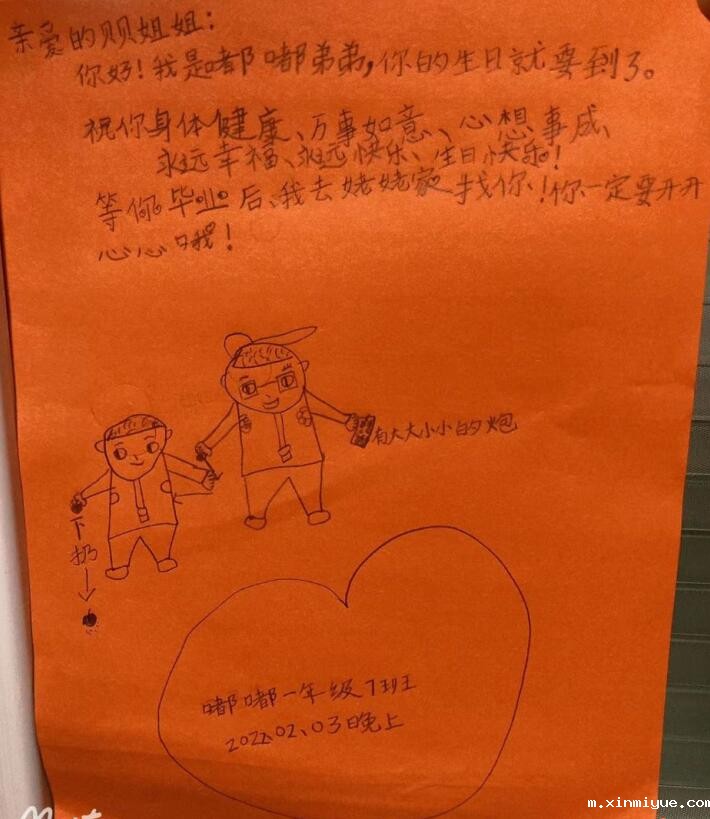 亲爱的贝姐姐:
你好!我是嘟嘟弟弟,你的生日就要到了。
祝你身体健康、万事如意、心想事成、
永远幸福、永远快乐、生日快乐!
等你毕业后、我去姥姥家找你!你一定要开开
心心哦!
有大大小小的炮
下
扔
嘟嘟一年级7班
2022.02.03晚上
m.xinmiyue.com